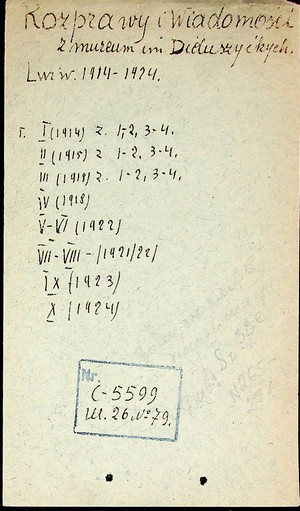 Rozprawy i Wiadomości
z muzeum im Dziduszyckych.
Lwiw. 1914-1924.
Т. I (1914) z. 1-2, 3-4.
II (1915) z 1-2, 3-4.
III (1918) z. 1-2, 3-4.
IV (1918)
V-VI (1922)
VII-VIII - (1921/22)
IX (1923)
X (1924)
Nr.
C-5599
Ш. 26 № 79.